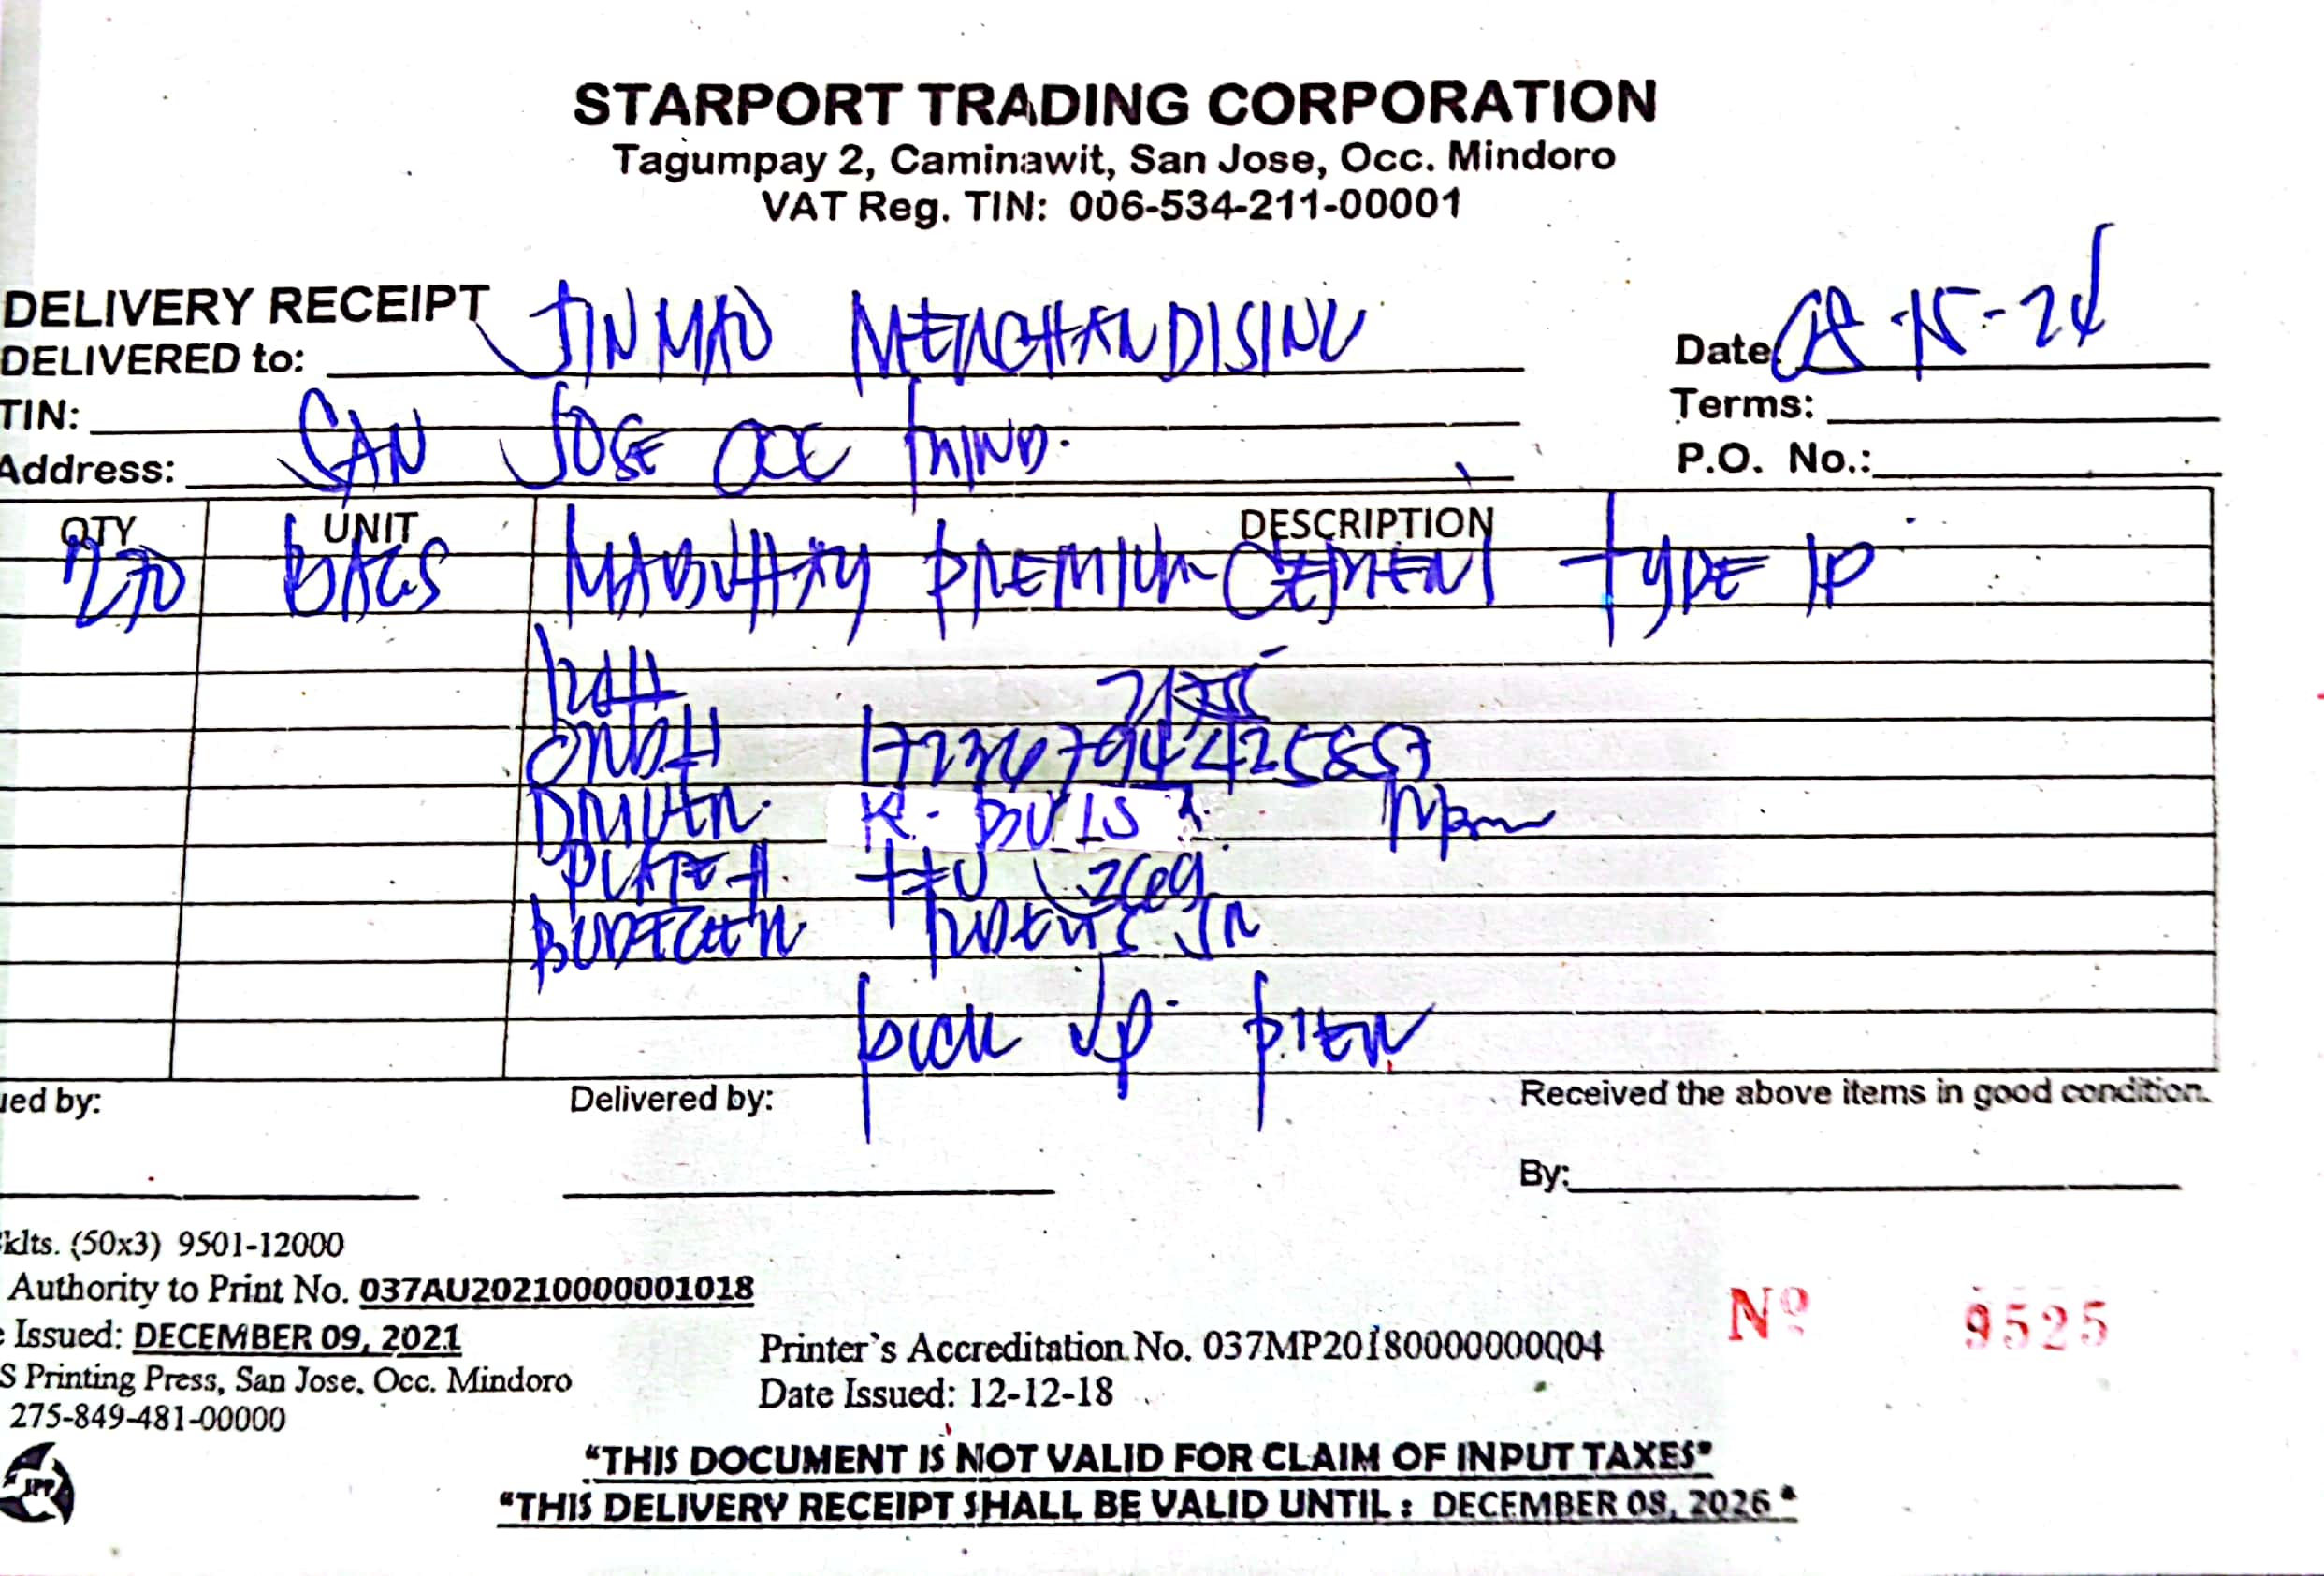 STARPORT TRADING CORPORATION
Tagumpay 2, Caminawit, San Jose, Occ. Mindoro
VAT Reg. TIN: 006-534-211-00001
DELIVERY RECEIPT
DELIVERED to: JINMAO MERCHANDISING
Date: 08-15-24
TIN:
Terms:
Address: SAN JOSE OCC MIND.
P.O. No.:
QTY UNIT DESCRIPTION
270 BAGS MABUHAY PREMIUM CEMENT TYPE 1P
DRIVER K.
PLATE #
PICK UP PIER
ued by:
Delivered by:
Received the above items in good condition.
By:
klts. (50x3) 9501-12000
Authority to Print No. 037AU20210000001018
Issued: DECEMBER 09, 2021
S Printing Press, San Jose, Occ. Mindoro
275-849-481-00000
Printer's Accreditation No. 037MP20180000000004
Date Issued: 12-12-18
Nº 9525
"THIS DOCUMENT IS NOT VALID FOR CLAIM OF INPUT TAXES"
"THIS DELIVERY RECEIPT SHALL BE VALID UNTIL : DECEMBER 08, 2026"